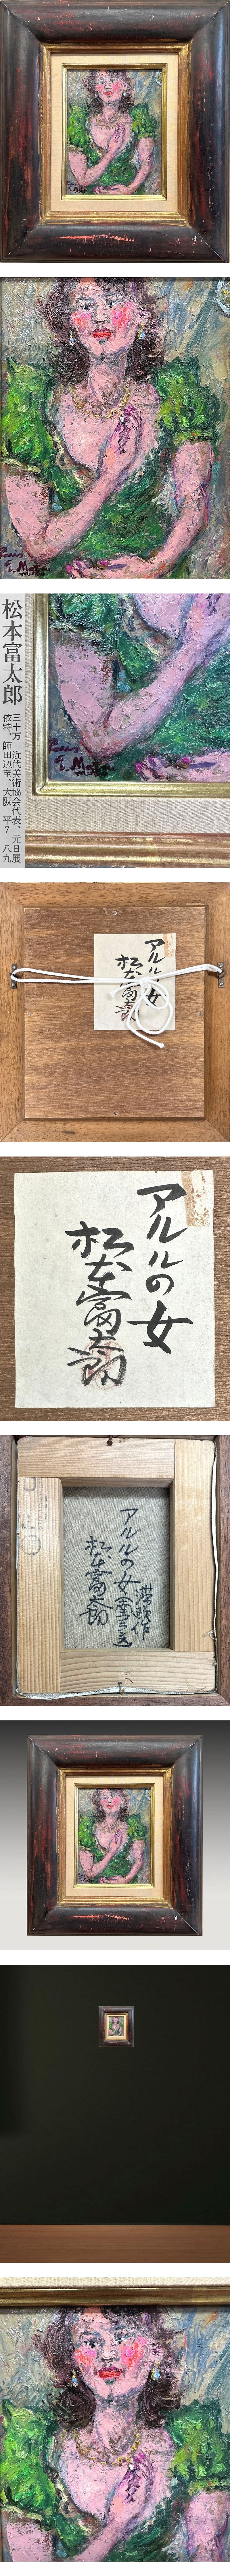 Paris
T. Matsu
moto
松本富太郎
三十万 近代美術協会代表、元日展
依特、師田辺至、大阪 平7 八九
アルルの女
松本富太郎
アルルの女
松本富太郎
滞欧作
アルルの女(南フランス)
松本富太郎